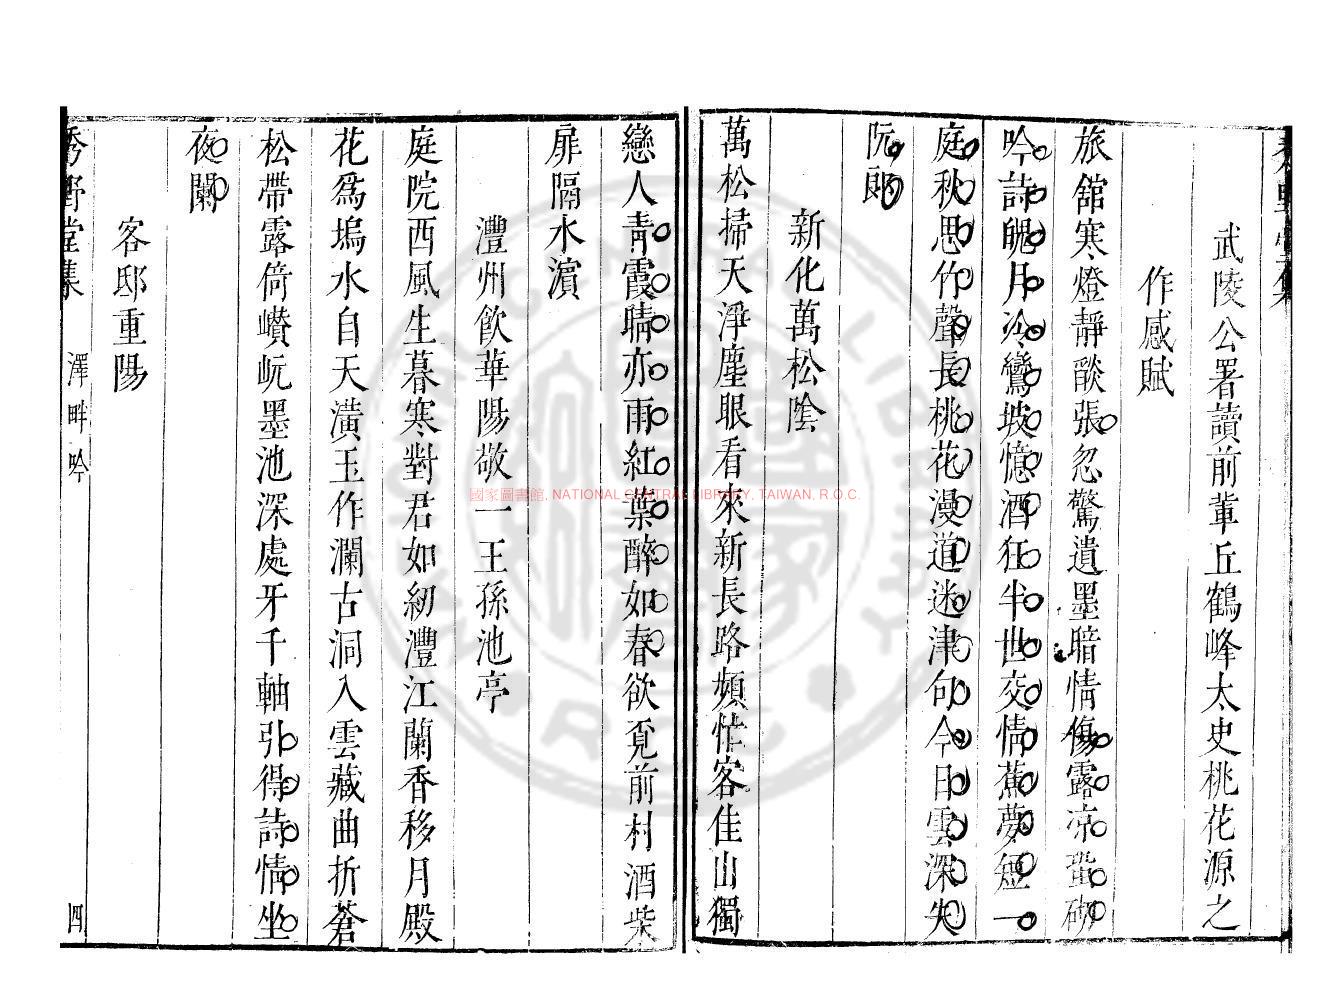 武陵公署讀前輩丘鶴峰太史桃花源之
作感賦
旅舘寒燈靜酸張忽驚遺墨暗情傷露凉蛩砌
吟詩魄月冷鸞坡憶酒狂半世交情蕉夢短一
庭秋思竹聲長桃花漫道迷津句今日雲深失
阮郎
新化萬松陰
萬松掃天淨塵眼看來新長路頻忙客佳山獨
戀人青霞晴亦雨紅葉醉如春欲覓前村酒柴
扉隔水濵
澧州飮華陽敬一王孫池亭
庭院西風生暮寒對君如紉澧江蘭香移月殿
花爲塢水自天潢玉作瀾古洞入雲藏曲折蒼
松帶露倚巑岏墨池深處牙千軸引得詩情坐
夜闌
客邸重陽
秀野堂集 澤畔吟 四
國家圖書館, NATIONAL CENTRAL LIBRARY, TAIWAN, R.O.C.